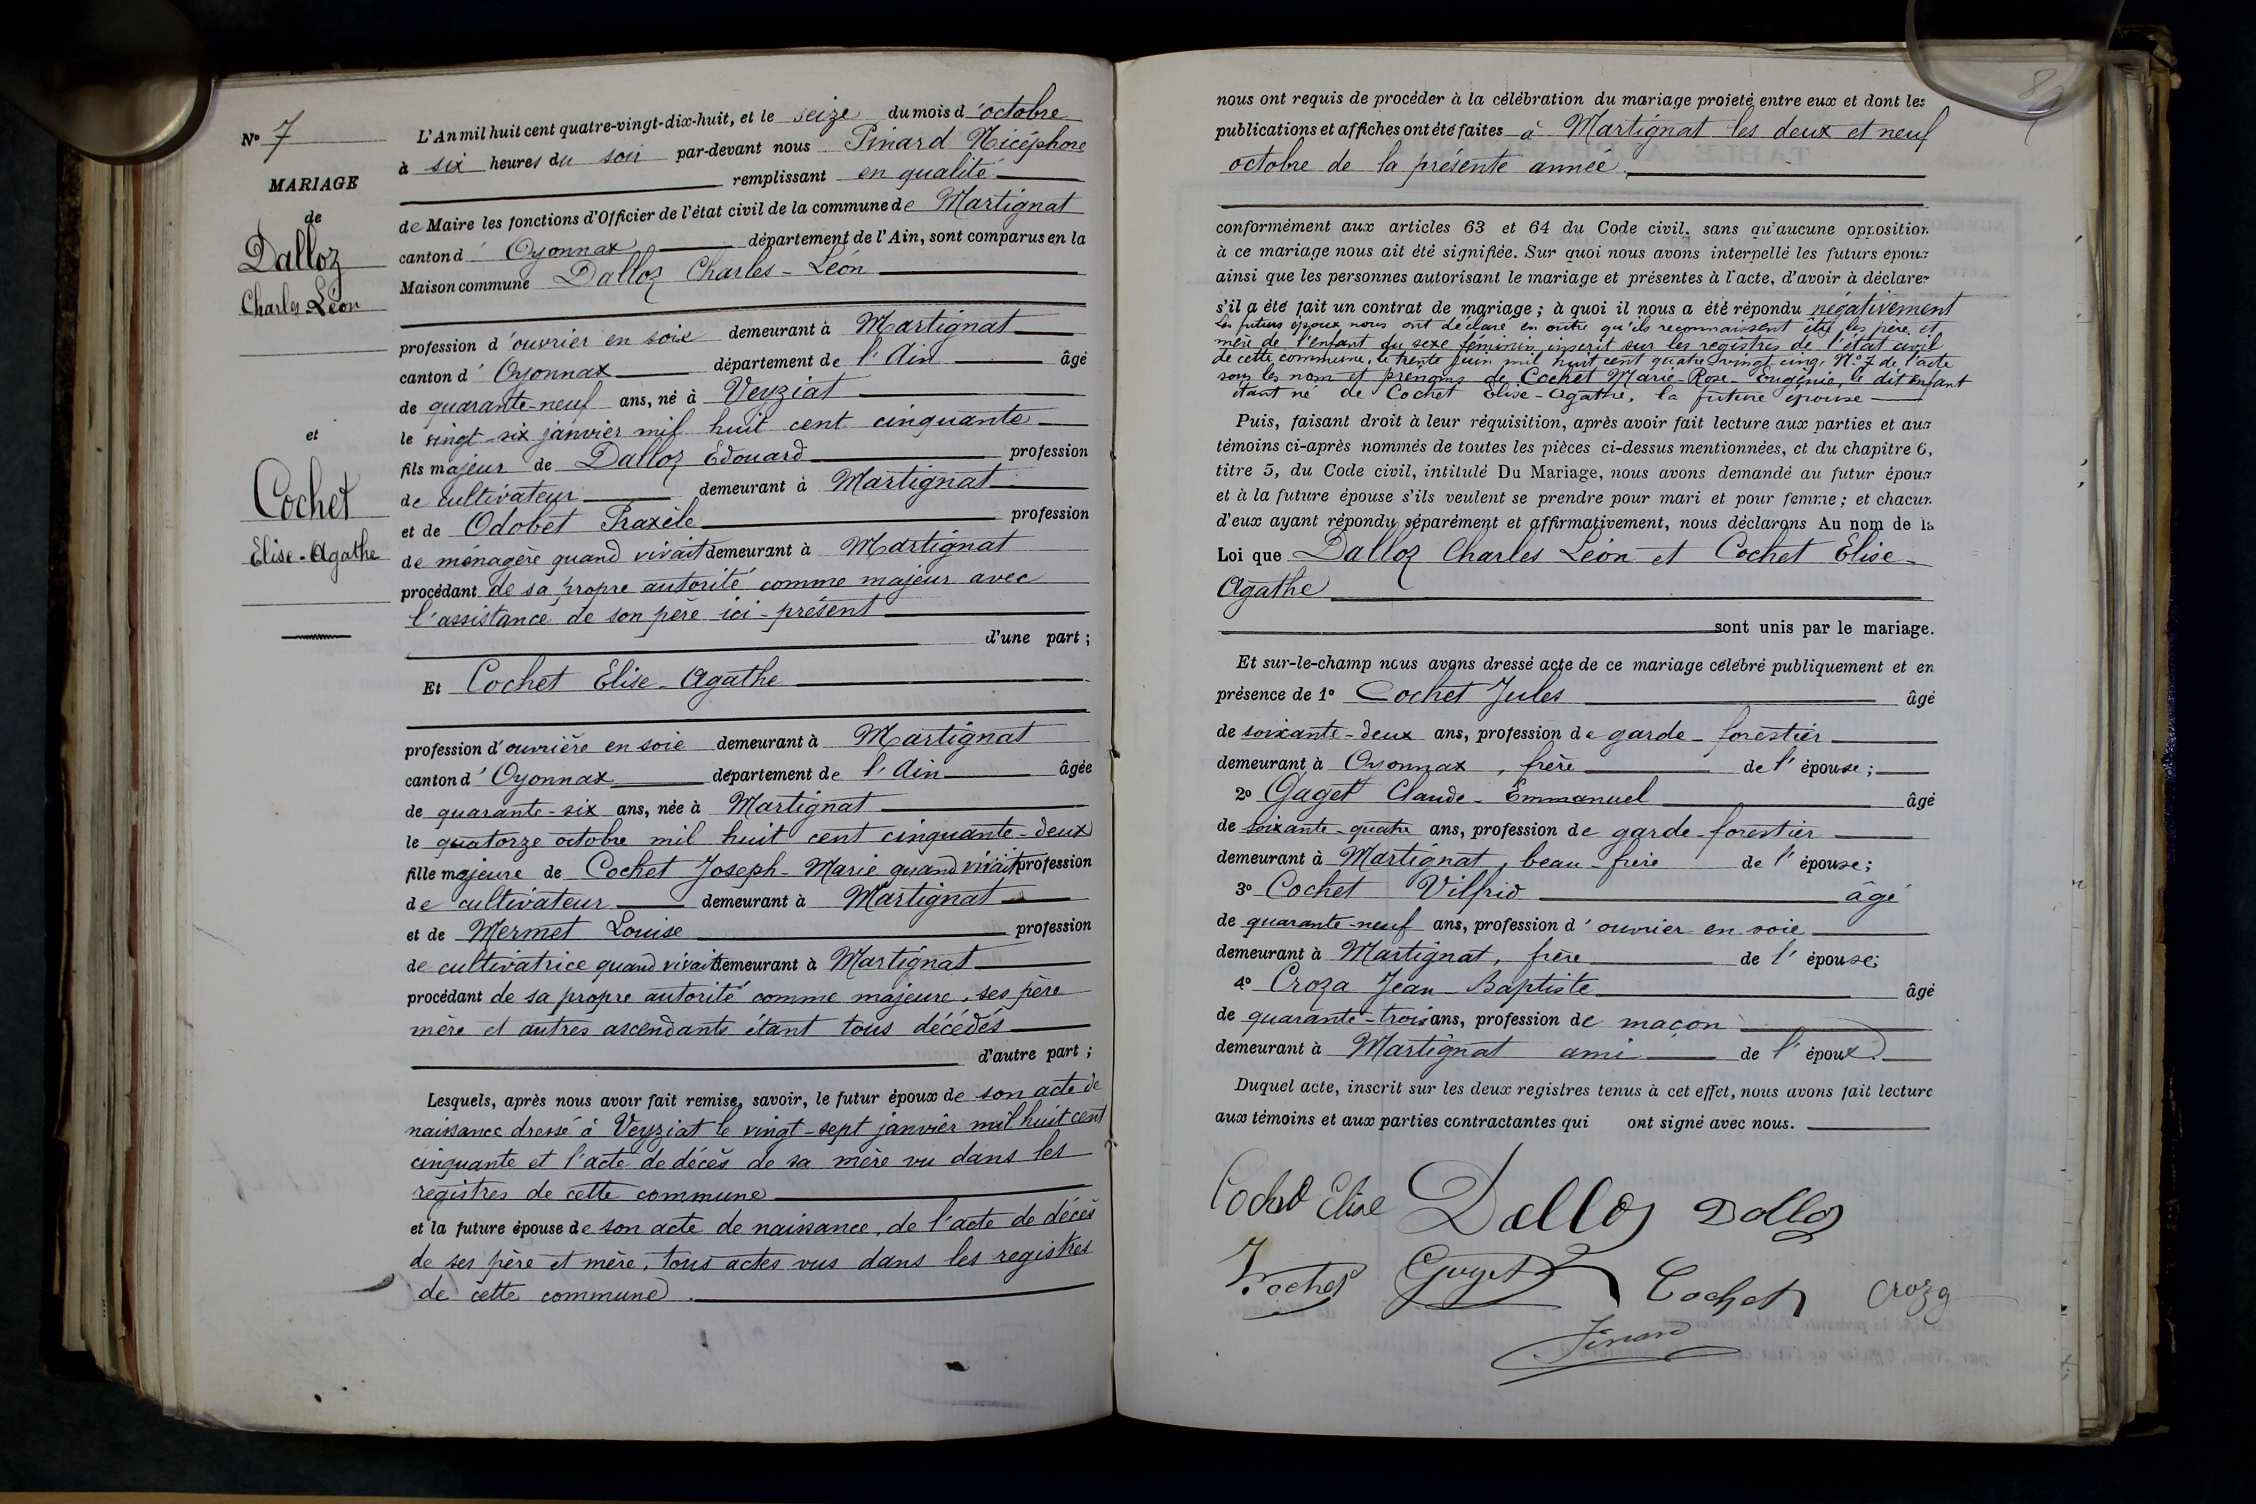 N° 7
MARIAGE
de
Dalloz
Charles Léon
et
Cochet
Elise-Agathe
L'An mil huit cent quatre-vingt-dix-huit, et le seize du mois d'octobre
à six heures du soir par-devant nous Pinard Nicéphore
remplissant en qualité
de Maire les fonctions d'Officier de l'état civil de la commune de Martignat
canton d'Oyonnax département de l'Ain, sont comparus en la
Maison commune Dalloz Charles-Léon
profession d'ouvrier en soie demeurant à Martignat
canton d'Oyonnax département de l'Ain âgé
de quarante-neuf ans, né à Veyziat
le vingt-six janvier mil huit cent cinquante
fils majeur de Dalloz Edouard profession
de cultivateur demeurant à Martignat
et de Odobet Praxèle profession
de ménagère quand vivait demeurant à Martignat
procédant de sa propre autorité comme majeur avec
l'assistance de son père ici-présent
d'une part ;
Et Cochet Elise-Agathe
profession d'ouvrière en soie demeurant à Martignat
canton d'Oyonnax département de l'Ain âgée
de quarante-six ans, née à Martignat
le quatorze octobre mil huit cent cinquante-deux
fille majeure de Cochet Joseph-Marie quand vivait profession
de cultivateur demeurant à Martignat
et de Mermet Louise profession
de cultivatrice quand vivait demeurant à Martignat
procédant de sa propre autorité comme majeure, ses père
mère et autres ascendants étant tous décédés
d'autre part ;
Lesquels, après nous avoir fait remise, savoir, le futur époux de son acte de
naissance dressé à Veyziat le vingt-sept janvier mil huit cent
cinquante et l'acte de décès de sa mère vu dans les
registres de cette commune
et la future épouse de son acte de naissance, de l'acte de décès
de ses père et mère, tous actes vus dans les registres
de cette commune.
8
nous ont requis de procéder à la célébration du mariage projeté entre eux et dont les
publications et affiches ont été faites à Martignat les deux et neuf
octobre de la présente année.
conformément aux articles 63 et 64 du Code civil, sans qu'aucune opposition
à ce mariage nous ait été signifiée. Sur quoi nous avons interpellé les futurs époux
ainsi que les personnes autorisant le mariage et présentes à l'acte, d'avoir à déclarer
s'il a été fait un contrat de mariage ; à quoi il nous a été répondu négativement
Les futurs époux nous ont déclaré en outre qu'ils reconnaissent être les père et
mère de l'enfant du sexe féminin inscrit sur les registres de l'état civil
de cette commune, le trente juin mil huit cent quatre vingt cinq, N° 7 de l'acte
sous les nom et prénoms de Cochet Marie-Rose-Eugénie, le dit enfant
étant né de Cochet Elise-Agathe, la future épouse
Puis, faisant droit à leur réquisition, après avoir fait lecture aux parties et aux
témoins ci-après nommés de toutes les pièces ci-dessus mentionnées, et du chapitre 6,
titre 5, du Code civil, intitulé Du Mariage, nous avons demandé au futur époux
et à la future épouse s'ils veulent se prendre pour mari et pour femme ; et chacun
d'eux ayant répondu séparément et affirmativement, nous déclarons Au nom de la
Loi que Dalloz Charles Léon et Cochet Elise-
Agathe
sont unis par le mariage.
Et sur-le-champ nous avons dressé acte de ce mariage célébré publiquement et en
présence de 1° Cochet Jules âgé
de soixante-deux ans, profession de garde-forestier
demeurant à Oyonnax, frère de l'épouse ;
2° Gaget Claude-Emmanuel âgé
de soixante-quatre ans, profession de garde-forestier
demeurant à Martignat, beau-frère de l'épouse ;
3° Cochet Vilfrid âgé
de quarante-neuf ans, profession d'ouvrier en soie
demeurant à Martignat, frère de l'épouse ;
4° Croza Jean-Baptiste âgé
de quarante-trois ans, profession de maçon
demeurant à Martignat ami de l'époux.
Duquel acte, inscrit sur les deux registres tenus à cet effet, nous avons fait lecture
aux témoins et aux parties contractantes qui ont signé avec nous.
Cochet Elise Dalloz Dalloz
J. Cochet Gaget Cochet Croza
Pinard